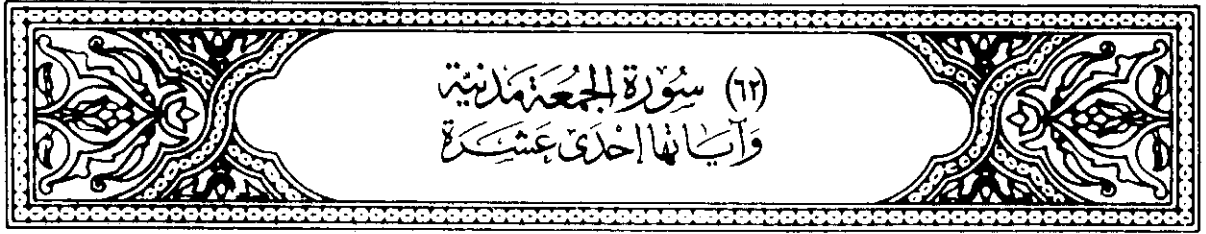 (٦٢) سُورَة الجُمُعَة مَدَنيَّة
وَآيَاتُهَا إحْدَى عَشَرَة